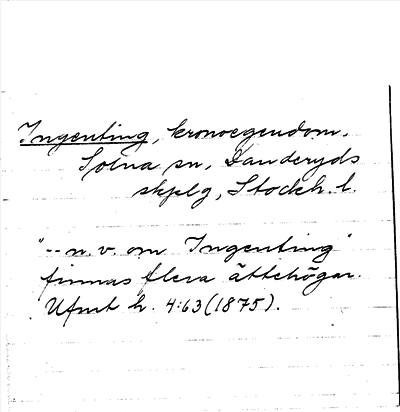 Ingenting, kronoegendom,
Solna sn, Danderyds
skplg, Stockh. l.
"-- n. v. om Ingenting"
finnas flera ättehögar.
Ufmt h. 4:63 (1875).